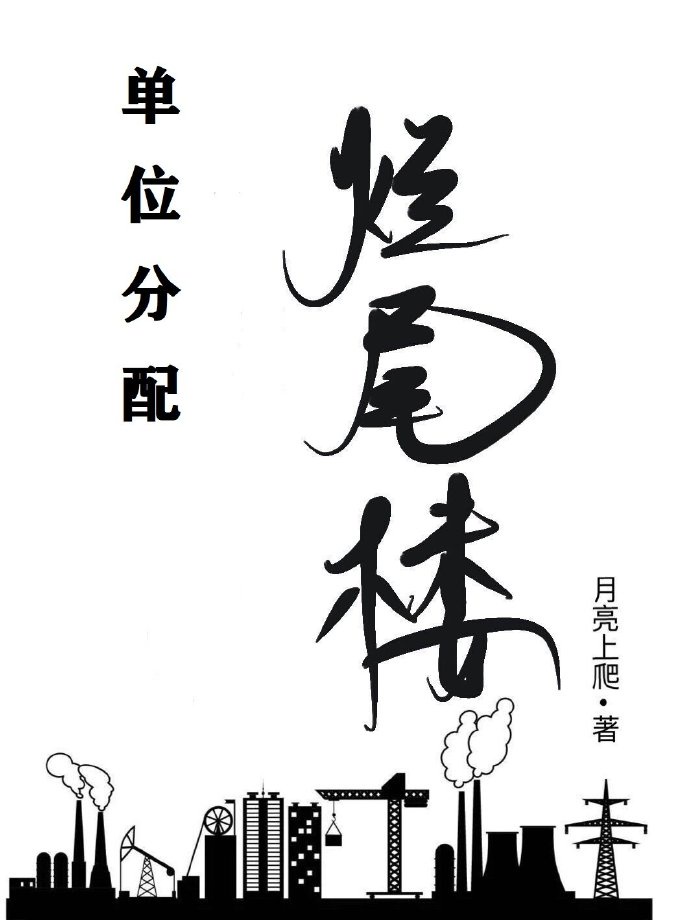 单位分配
烂尾楼
月亮上爬·著